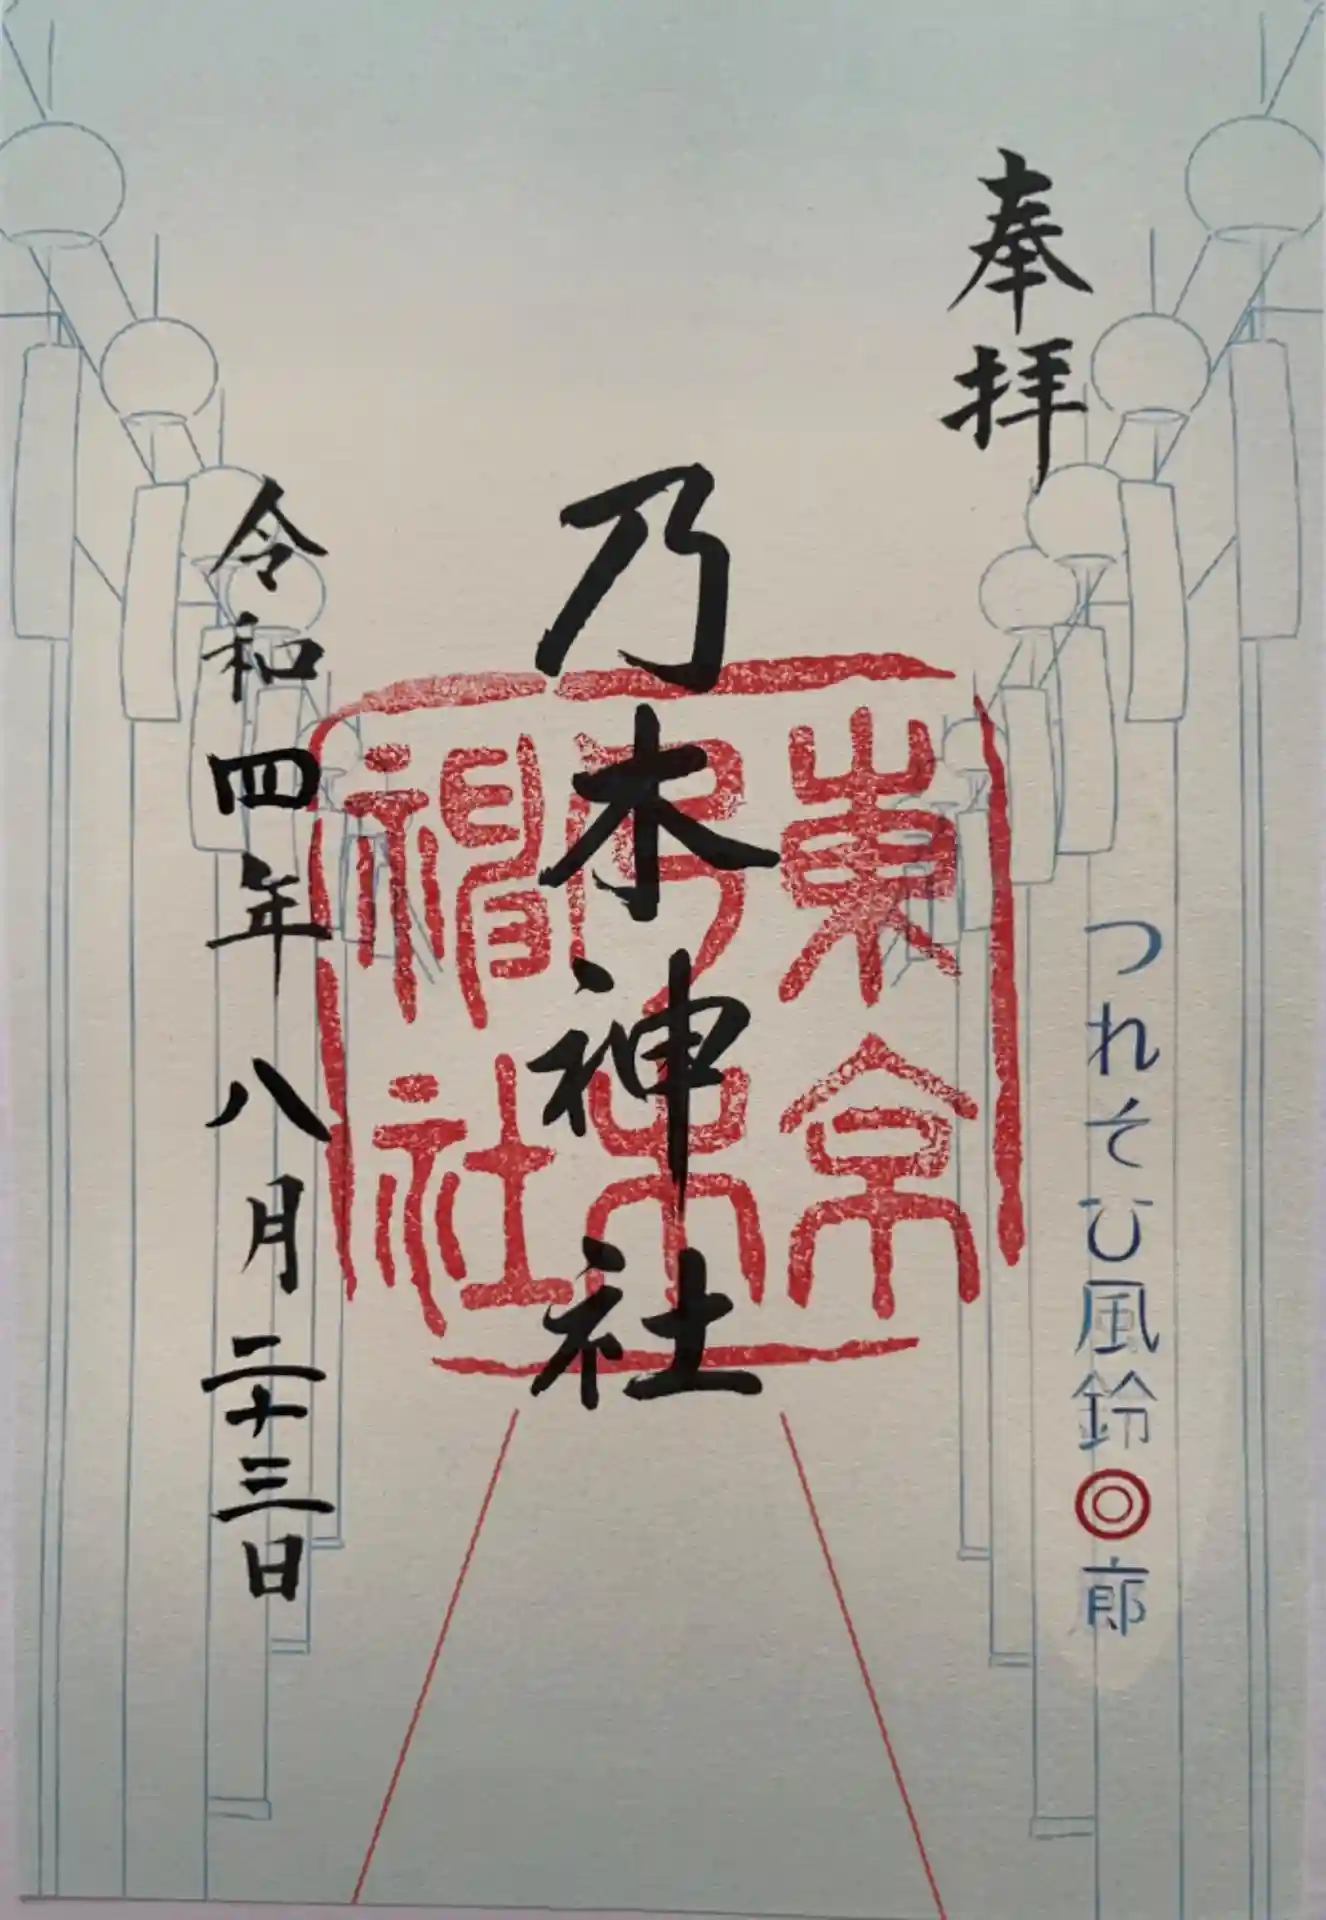 奉拝
つれそひ風鈴◎廊
東京
乃木
神社
乃木神社
令和四年八月二十三日